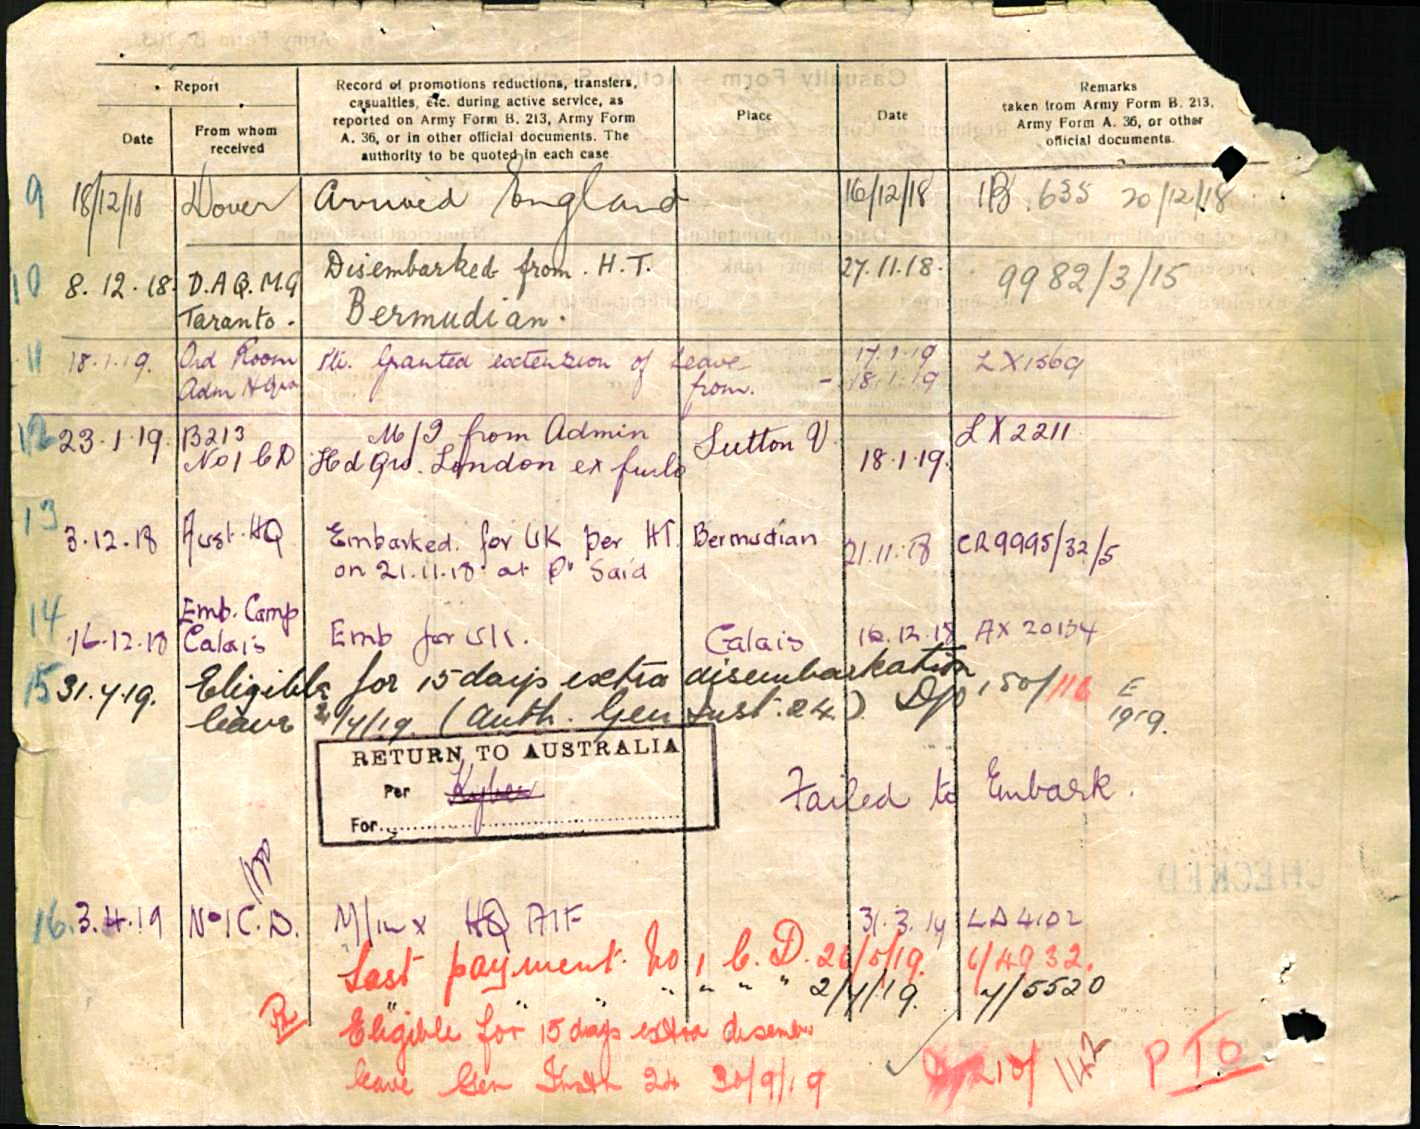 Report
Record of promotions reductions, transfers,
casualties, etc. during active service, as
reported on Army Form B. 213, Army Form
A. 36, or in other official documents. The
authority to be quoted in each case
Place
Date
Remarks
taken from Army Form B. 213,
Army Form A. 36, or other
official documents.
Date
From whom
received
9 18/12/18 Dover Arrived England 16/12/18 635 20/12/18
10 8.12.18. D.A.Q.M.G Disembarked from H.T. 27.11.18. 9982/3/15
Taranto. Bermudian.
11 18.1.19. Ord Room Granted extension of Leave 17.1.19 LX1569
Adm from. - 18.1.19
12 23.1.19. B213 from Admin Sutton V. LX2211
No 1 CD Hd Qrs. London ex furlo 18.1.19.
13
3.12.18 Aust. HQ Embarked for UK per HT. Bermudian 21.11.18 CR9995/32/5
on 21.11.18 at Pt Said
14 Emb. Camp
16.12.18 Calais Emb for UK. Calais 16.12.18 AX 20134
15 31.7.19. Eligible for 15 days extra disembarkation D/P 150/116 E
leave (Auth. Gen Inst. 24) 1919.
RETURN TO AUSTRALIA
Per Khyber
For
Failed to Embark.
16. 3.4.19 No 1 C.D. HQ AIF 31.3.19 LD4102
Last payment. No 1 C. D. 26/5/19. 6/4932.
" " " " " " 2/7/19. 7/5520
Eligible for 15 days extra disemb
leave Gen 24 30/9/19 210/ 1142 PTO
CHECKED